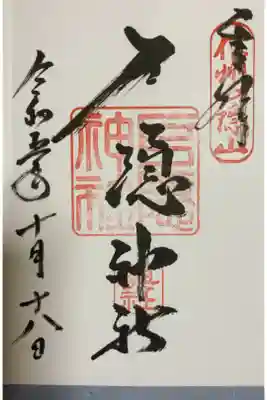 奉拝
信州戸隠山
戸隠神社
戸隠神社
令和五年十月十八日